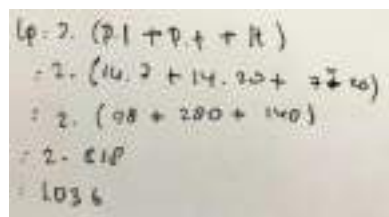 Lp: 2. (p.l + p.t + lt)
: 2. (14.7 + 14.20 + 7.20)
: 2. (98 + 280 + 140)
: 2. 518
: 1036